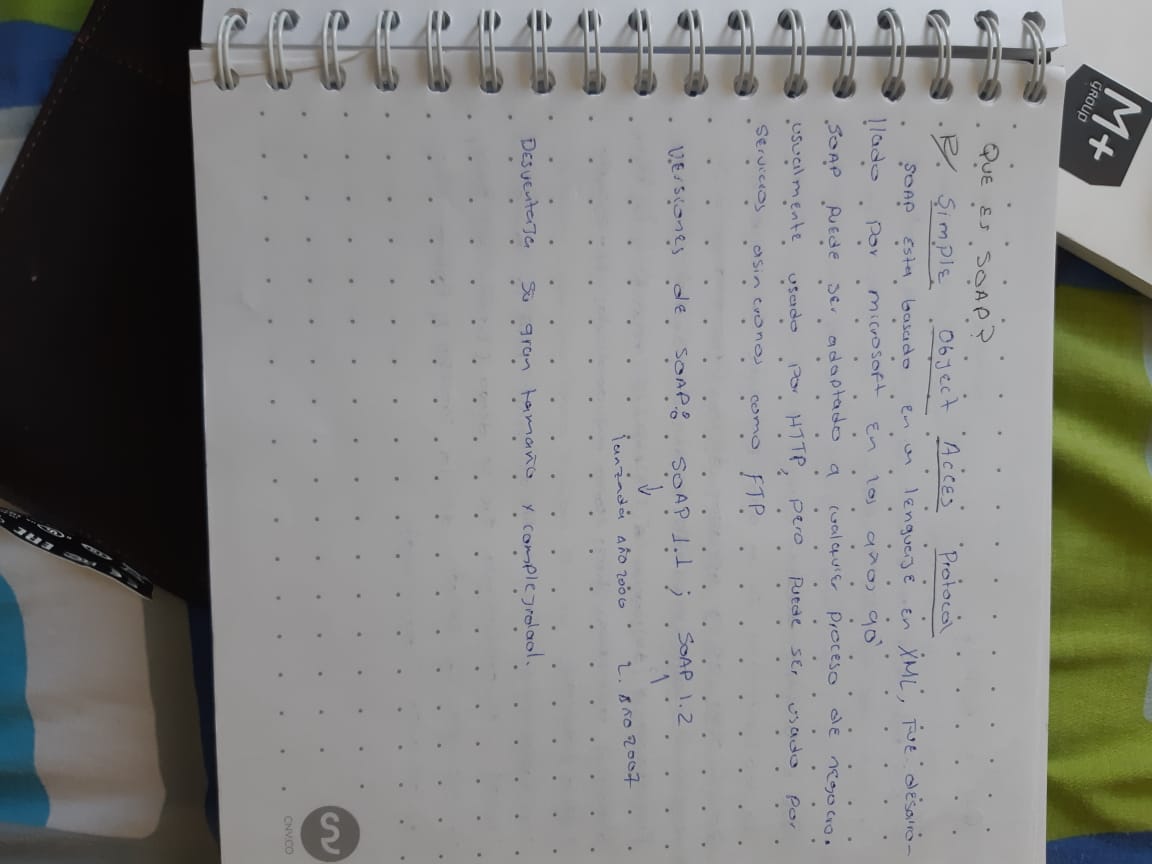 QUE ES SOAP?
R/ Simple Object Acces Protocol
SOAP esta basado en un lenguaje en XML, FUE desarro-
llado por microsoft en los años 90'
SOAP puede ser adaptado a cualquier proceso de negocio.
usualmente usado por HTTP, pero puede ser usado por
servicios asincronos como FTP
Versiones de SOAP: SOAP 1.1 ; SOAP 1.2
lanzada Año 2006 2. Año 2007
Desventaja su gran tamaño y complejidad.
M+
GROUP
CNVCO